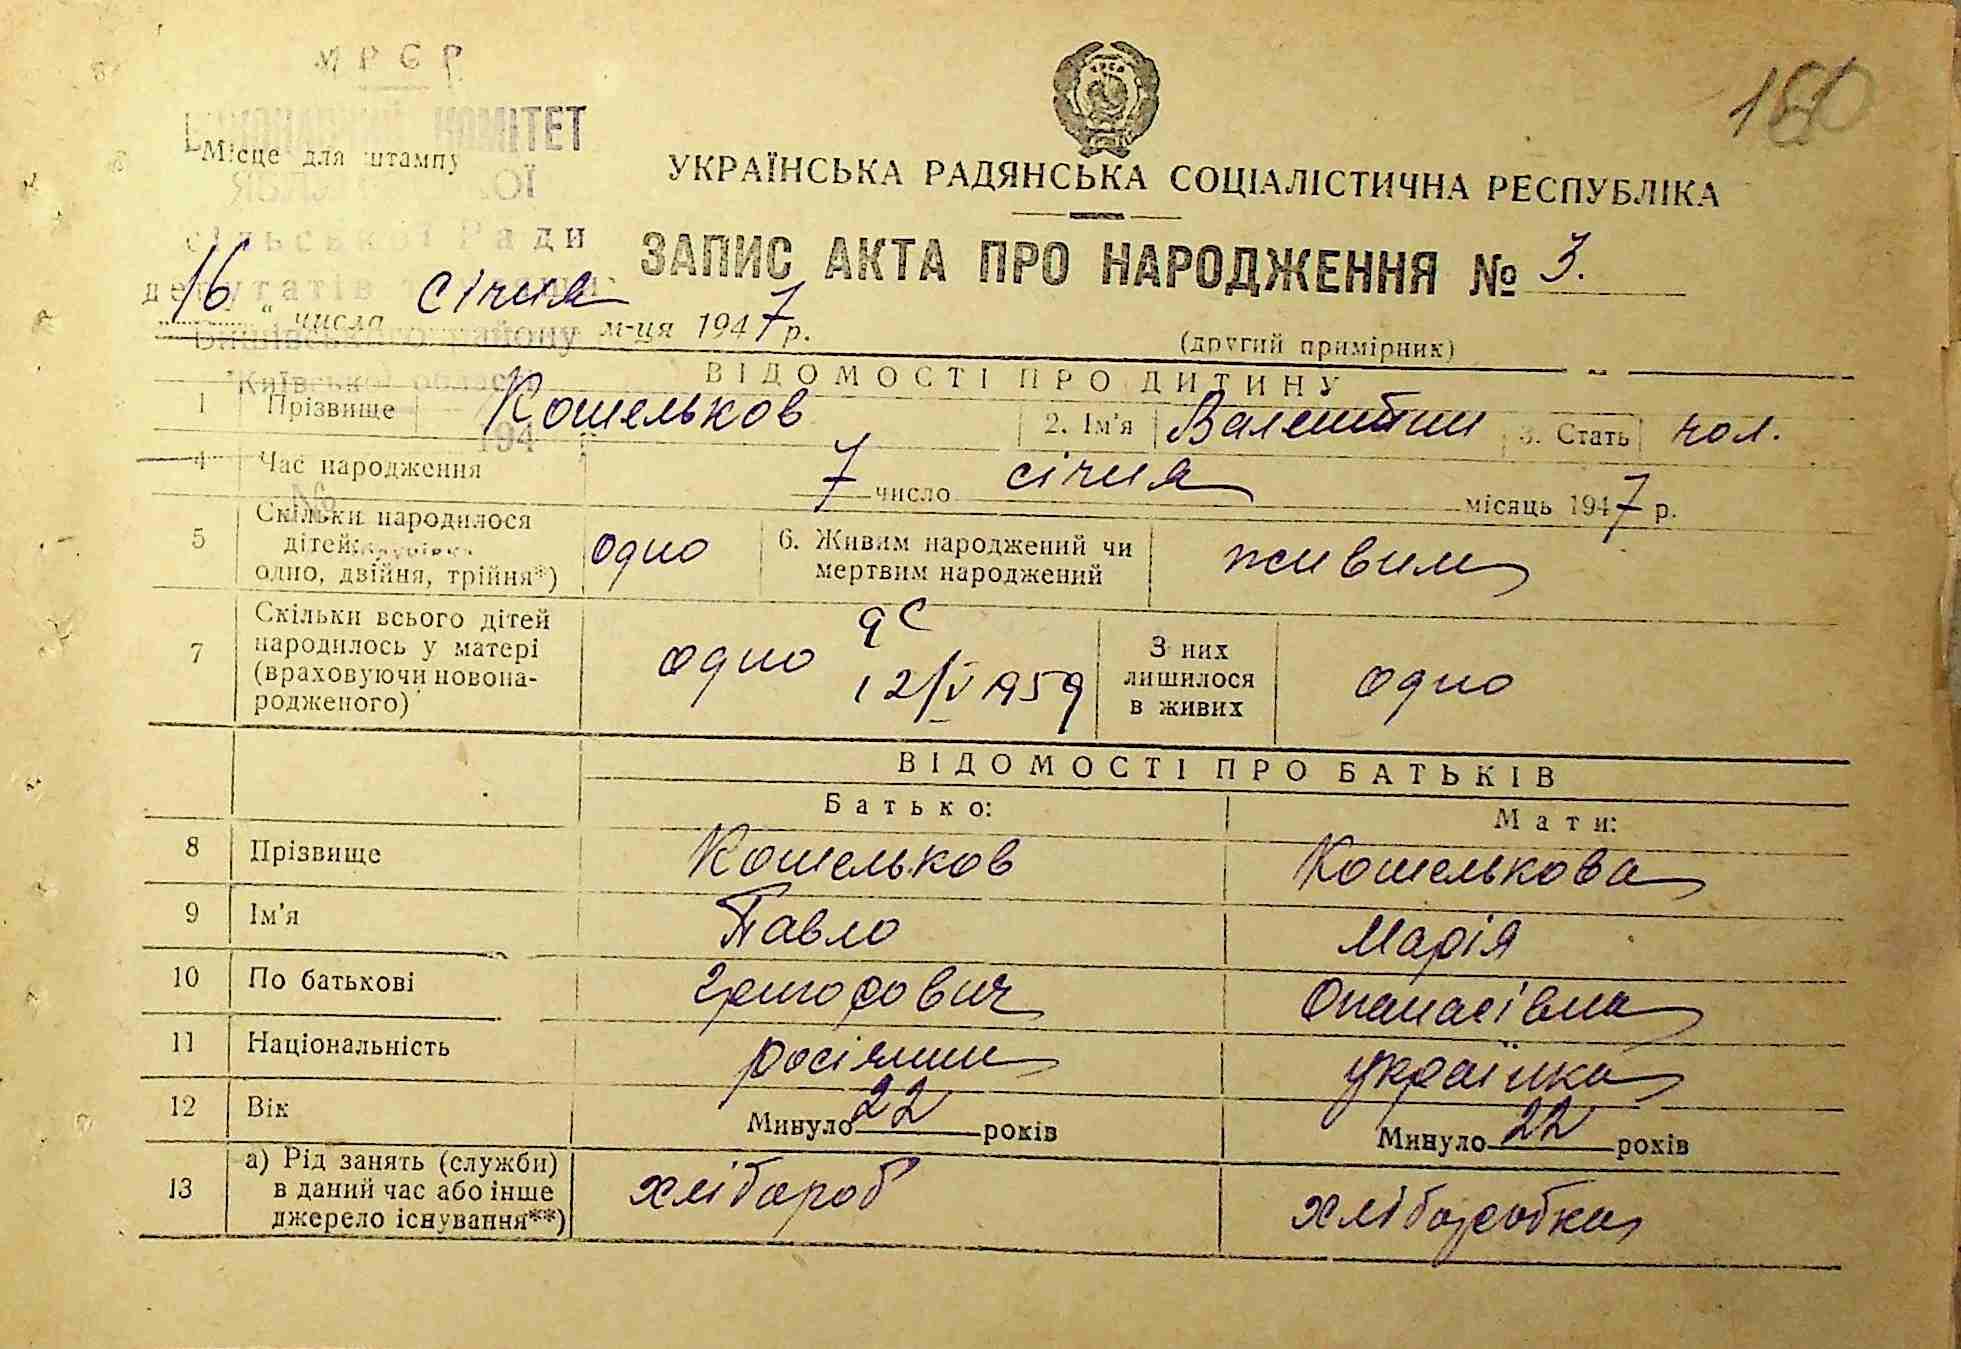 УРСР
ВИКОНАВЧИЙ КОМІТЕТ
Місце для штампу
сільської Ради
депутатів
району
Київської області
194
№
180
УКРАЇНСЬКА РАДЯНСЬКА СОЦІАЛІСТИЧНА РЕСПУБЛІКА
ЗАПИС АКТА ПРО НАРОДЖЕННЯ № 3.
16 " числа січня м-ця 1947 р.
(другий примірник)
ВІДОМОСТІ ПРО ДИТИНУ
1 Прізвище Кошельков 2. Ім'я Валентин 3. Стать чол.
4 Час народження 7 число січня місяць 1947 р.
5 Скільки народилося
дітей:
одно, двійня, трійня*) одно 6. Живим народжений чи
мертвим народжений живим
7 Скільки всього дітей
народилось у матері
(враховуючи новона-
родженого) одно
12/V 1959
З них
лишилося
в живих одно
ВІДОМОСТІ ПРО БАТЬКІВ
Батько: Мати:
8 Прізвище Кошельков Кошелькова
9 Ім'я Павло Марія
10 По батькові Григорович Опанасівна
11 Національність росіянин українка
12 Вік Минуло 22 років Минуло 22 років
13 а) Рід занять (служби)
в даний час або інше
джерело існування**) хлібороб хліборобка